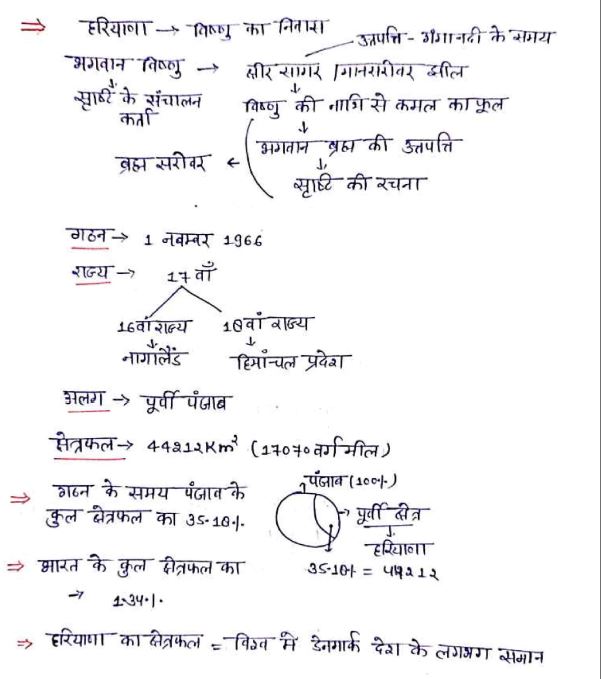 ⇒ हरियाणा → विष्णु का निवास
उत्पत्ति - गंगानदी के समय
भगवान विष्णु → क्षीर सागर / मानसरोवर झील
↓
सृष्टि के संचालन कर्ता
विष्णु की नाभि से कमल का फूल
↓
भगवान ब्रह्म की उत्तपत्ति
ब्रह्म सरोवर ←
↓
सृष्टि की रचना
गठन → 1 नवम्बर 1966
राज्य → 17 वाँ
16वां राज्य 18वां राज्य
↓ ↓
नागालैंड हिमांचल प्रदेश
अलग → पूर्वी पंजाब
क्षेत्रफल → 44212Km² (17070 वर्ग मील)
⇒ गठन के समय पंजाब के
कुल क्षेत्रफल का 35.18%.
पंजाब (100%)
→ पूर्वी क्षेत्र
↓
हरियाणा
35.18% = 44212
⇒ भारत के कुल क्षेत्रफल का
→ 1.34%.
⇒ हरियाणा का क्षेत्रफल = विश्व में डेनमार्क देश के लगभग समान